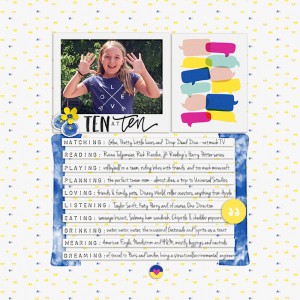 L
O E
V
TEN AT ten
WATCHING: Glee, Pretty Little Liars and Drop Dead Diva - not much TV
READING: Raina Telgemeier, Rick Riordan, JK Rowling's Harry Potter series
PLAYING: volleyball on a team, riding bikes with friends, and too much minecraft
PLANNING: the perfect tween room - about dream a trip to Universal Studios
LOVING: friends & family, pets, Disney World, roller coasters, anything from Apple
LISTENING: Taylor Swift, Katy Perry and of course One Direction
EATING: sausage biscuit, Salami, ham sandwich, Chipotle & cheddar popcorn
DRINKING: water, water, water, the occasional Gatorade and Sprite as a treat
WEARING: American Eagle, Abercrombie and H&M, mostly leggings and neutrals
DREAMING: of travel to Paris and London, being a structural/environmental engineer